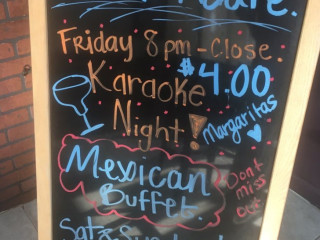 Cafe.
Friday 8pm - Close
Karaoke
Night!
$4.00
Margaritas
Mexican
Buffet
Don't
miss
out
Sat &